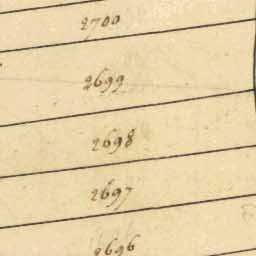 2700
2699
2698
2697
2696